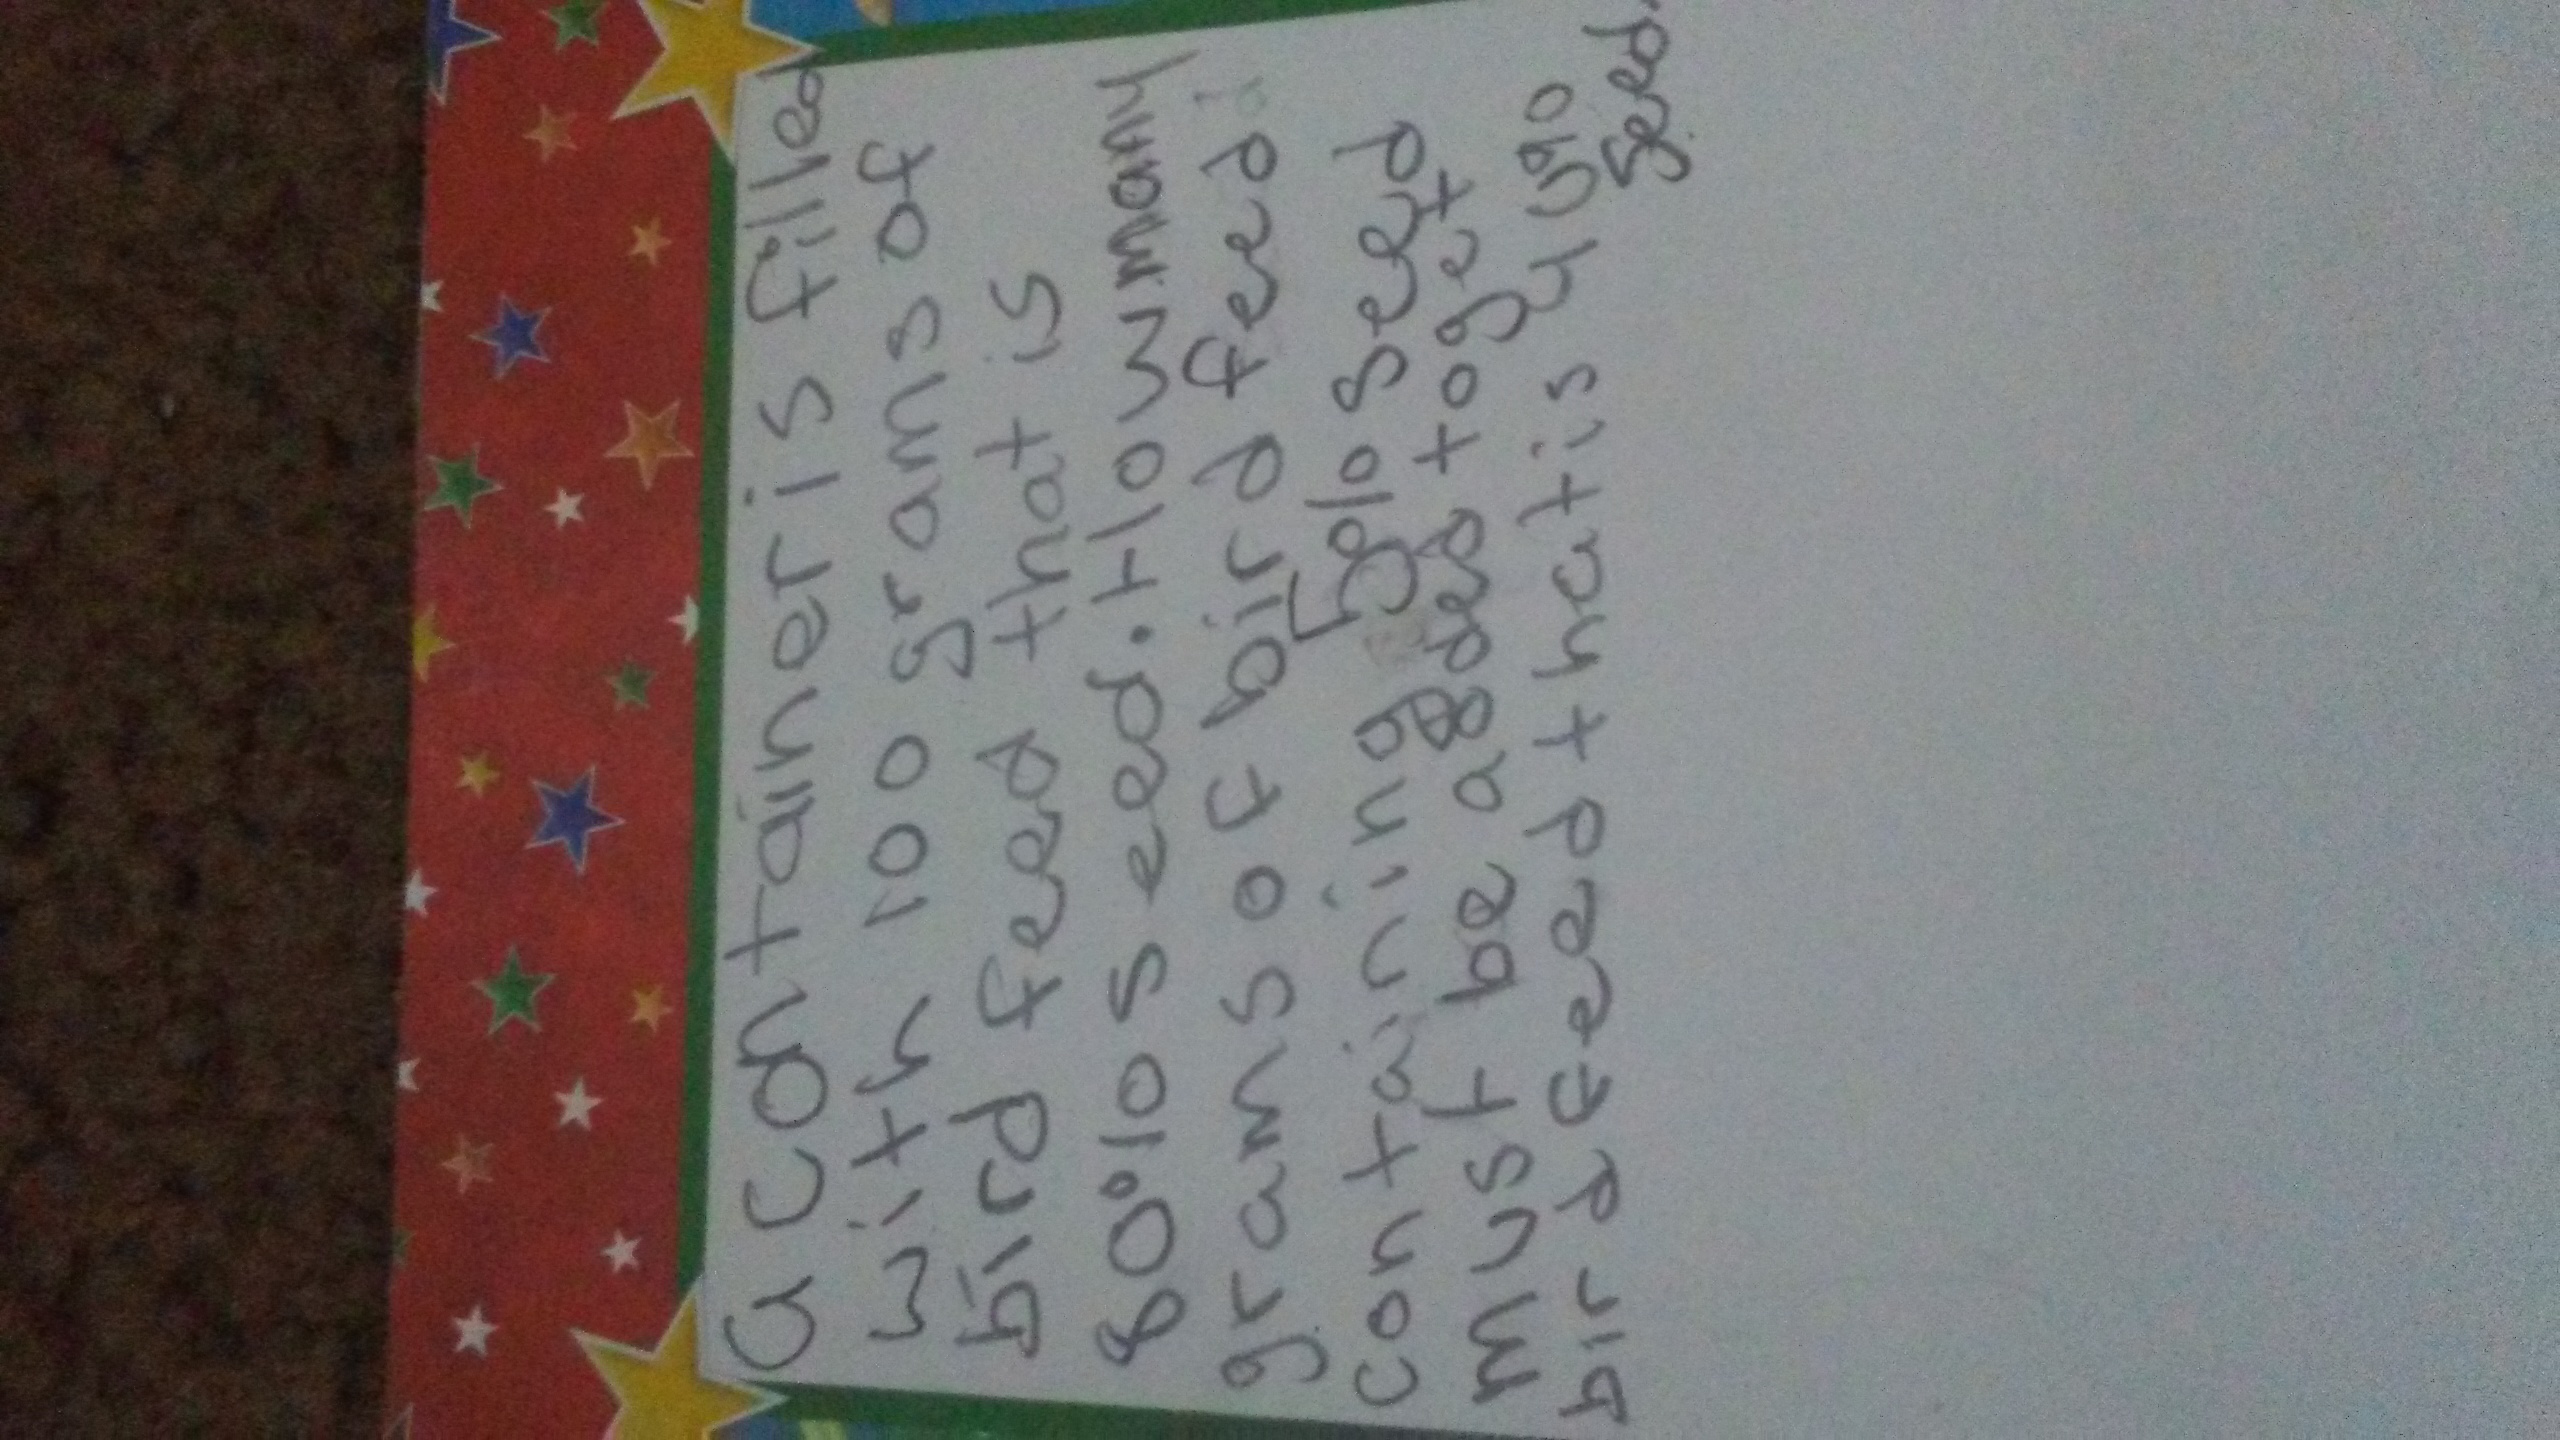 a container is filled
with 100 grams of
bird feed that is
80% seed. How many
grams of bird feed
containing 5% seed
must be added to get
bird feed that is
seed.